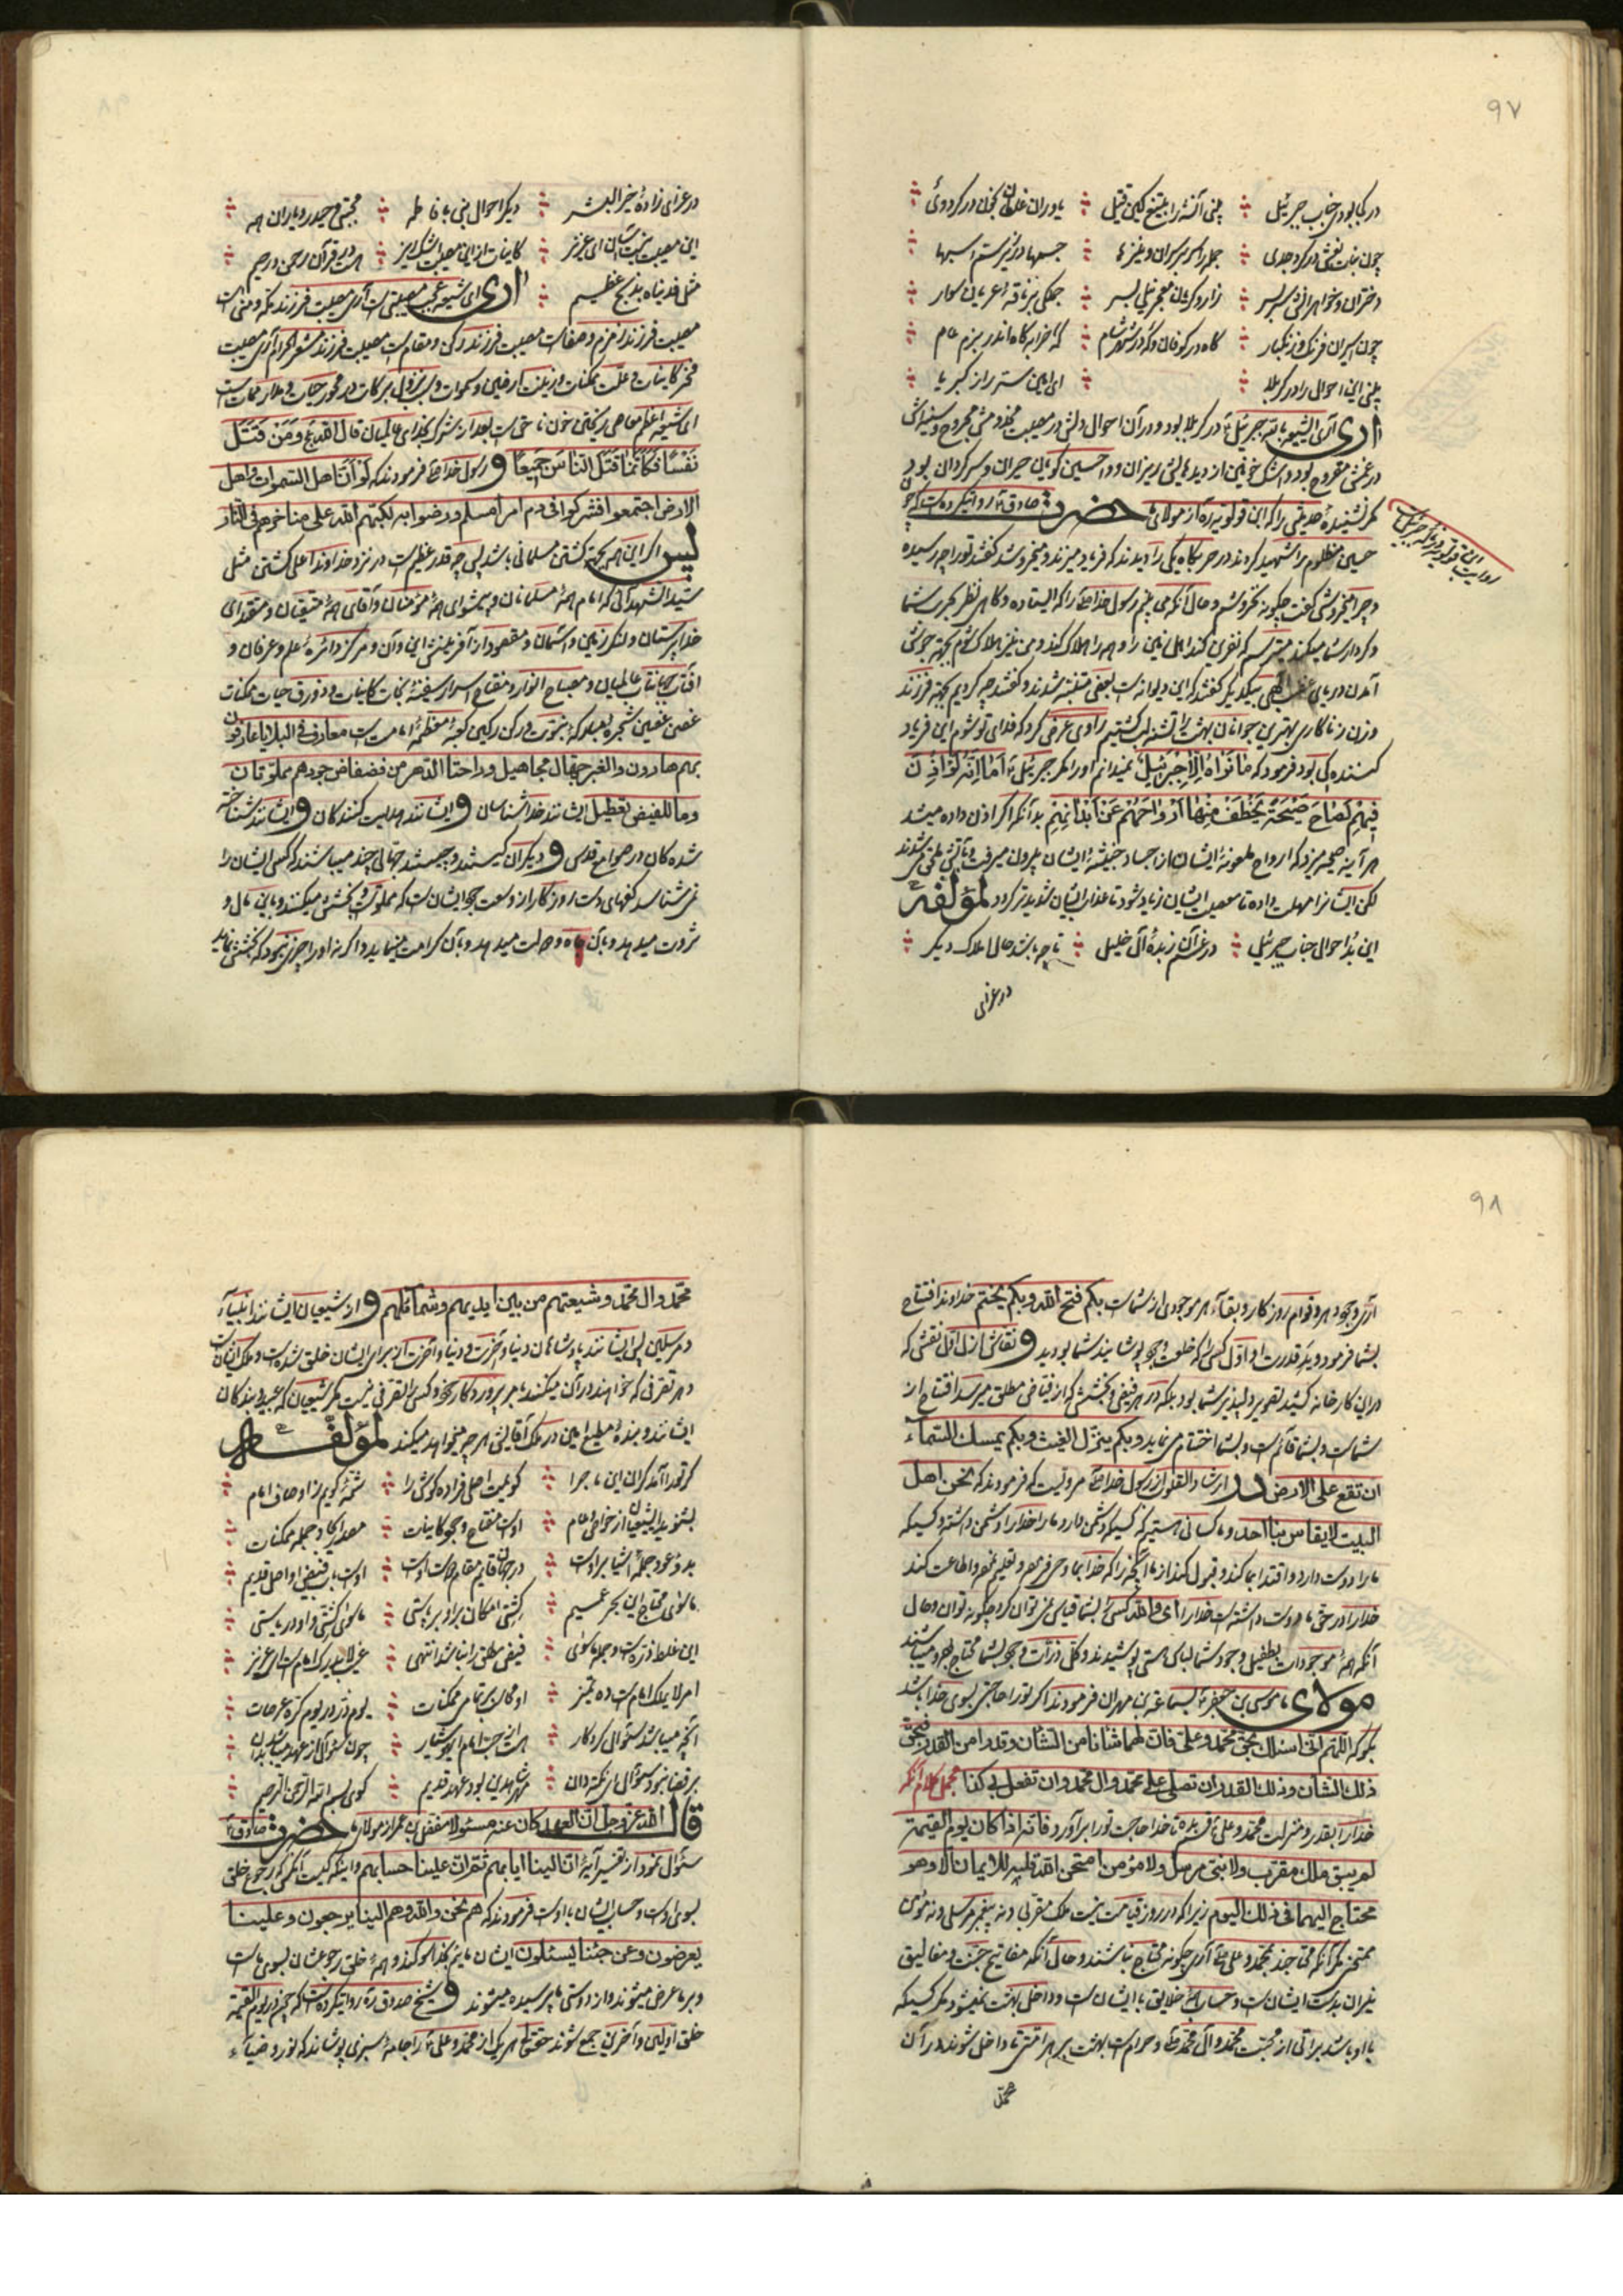 ۹۷
در کجا بودی جناب جبرئیل بینی آنشه را بتیغ کین قتیل یاوران غلطان بخون در کرد وی
چون بنات نعش در کرد جدی جمله را سر بر سر ان و نیزها جسمها در زیر ستم اسبها
دختران و خواهرانش سربسر زار و گریان معجر نیلی بسر جملگی بر ناقه عریان سوار
چون اسیران فرنک و زنکبار گاه در کوفان و گه در شهر شام که خرابه گاه اندر بزم عام
بینی این احوال را در کربلا ای امین ستر راز کبریا
اری آری ایشیعه البته جبرئیل در کربلا بود و در آن احوال دلش در مصیبت مخدومش مجروح و سینه اش
در غمش مقروح بود و اشک خونین از دیدهایش ریزان و واحسین گویان حیران و سرگردان بود
مگر نشنیدهٔ حدیثی را که ابن قولویه ره از مولای حضرت صادق ع روایتکرده است که چون
حسین مظلوم را شهید کردند در حربگاه یکی را دیدند که فریاد میزند و میخروشد گفتند تورا چه رسیده
و چرا میخروشی گفت چگونه نخروشم و حال آنکه می بینم رسول خدا ص را که ایستاده و گاهی نظر بحرب شما
و کردار شما میکند میترسم که نفرین کند اهل زمین را و همه را هلاک کند و من نیز هلاک شوم بجهت جوش
آمدن دریای غضب الهی بیکدیگر گفتند که این دیوانه است بعضی متنبه شدند و گفتند چه کردیم بجهت فرزند
و زن زناکار بهترین جوانان بهشت را تشنه لب کشتیم راوی عرض کرد که فدای تو شوم این فریاد
کننده کی بود فرمود که ما نراه الا جبرئیل نمیدانم او را مگر جبرئیل اما انه لو اذن
فیهم لصاح صیحة یخطف منها ارواحهم عن ابدانهم بدآنکه اگر اذن داده میشد
هر آینه صیحه میزد که ارواح ملعونهٔ ایشان از اجساد خبیثهٔ ایشان بیرون میرفت و بآتش ملحق میشدند
لکن ایشانرا مهلت داده تا معصیت ایشان زیاد شود تا عذاب ایشان شدیدتر گردد لمؤلفه
این بُد احوال جناب جبرئیل در غم آن زبدهٔ آل خلیل تا چه باشد حال املاک دیگر
در عزای
روایت ابن قولویه در باره جبرئیل
در عزای زادهٔ خیرالبشر دیگر احوال نبی با فاطمه مجتبی و حیدر و یاران همه
این مصیبت نیست آسان ای عزیز کاینات از این مصیبت اشک ریز هست در قرآن رحمن و رحیم
مثل فدیناه بذبح عظیم اری ای شیعه عجب مصیبتی است آری مصیبت فرزند مکه و منی است
مصیبت فرزند زمزم و صفاست مصیبت فرزند رکن و مقام است مصیبت فرزند مشعرالحرام آری مصیبت
فخر کاینات و علت ممکنات و زینت ارضین و سموات و سبب نزول برکات و محور حیات و مدار ممات است
ای شیعه اعظم معاصی ریختن خون ناحق است بعد از شرک بخدای عالمیان قال الله تع و من قتل
نفسا فکانما قتل الناس جمیعا و رسول خدا ص فرمودند که لو ان اهل السموات و اهل
الارض اجتمعوا فشرکوا فی دم امرا مسلم و رضوا به لکبّهم الله علی مناخرهم فی النار
پس اگر این همه بجهت کشتن مسلمانی باشد پس چه قدر عظیم است در نزد خداوند اعلی کشتن مثل
سیدالشهدائی که امام همهٔ مسلمانان و پیشوای همهٔ مؤمنان و آقای همهٔ متقیان و مقتدای
خداپرستان و لنگر زمین و آسمان و مقصود از آفرینش این و آن و مرکز دائرهٔ علم و عرفان و
آفتاب جهانتاب عالمیان و مصباح انوار و مفتاح اسرار سفینهٔ نجات کاینات و زورق حیات ممکنات
غصن غصین شجرهٔ نبوت و رکن رکین کعبهٔ معظمهٔ امامت است معارف فی البلایا عارفون
بهم هادون و الغیر جهال مجاهیل و راحتا الدهر من فضفاض جودهم مملوتان
و ما للفیض تعطیل ایشانند خداشناسان و ایشانند هدایت کنندکان و ایشانند شناخته
شده کان در صوامع قدس و دیگران کیستند و چیستند جهالی چند میباشند که کسی ایشان را
نمی شناسد کفهای دست روزگار از وسعت جود ایشان است که مملوست و بخشش میکنند و باین مال و
ثروت میدهد و بآن جاه و دولت میدهد و بآن کرامت مینماید و اگر نه او را چیزی نبود که بخشش نماید
۹۸
آری وجود دهر و قوام روزگار و بقاء هر موجودی از شماست بکم فتح الله و بکم یختم خداوند افتتاح
بشما فرمود و ید قدرت او اول کسی را که خلعت وجود پوشانید شما بودید و نقاش ازل اول نقشی که
در این کارخانه کشید تصویر دلپذیر شما بود بلکه در هر فیض و بخشش که از فیاض مطلق میرسد افتتاح از
شماست و بشما قائم است و بشما اختتام می نماید و بکم ینزل الغیث و بکم یمسک السماء
ان تقع علی الارض در ارشاد القلوب از رسول خدا ص مرویست که فرمودند که نحن اهل
البیت لایقاس بنا احد و ما کسانی هستیم که کسیکه دشمن دارد ما را خدا را دشمن داشته و کسیکه
ما را دوست دارد و اقتدا بما کند و قبول کند از ما آنچه را که خدا بما وحی فرموده و تعلیم نموده و اطاعت کند
خدا را در حق ما دوست داشته است خدا را ای والله کسی را بشما قیاس نمی توان کرد چگونه توان و حال
آنکه همهٔ موجودات بطفیل وجود شما لباس هستی پوشیدند و کل ذرات وجود بشما محتاج بوده و میباشند
مولای ما موسی بن جعفر ع بسماعة بن مهران فرمودند اگر تو را حاجتی بسوی خدا باشد
بگو که اللهم انی اسئلک بحق محمد و علی فان لهما شانا من الشان و قدرا من القدر فبحق
ذلک الشان و ذلک القدر ان تصلی علی محمد و ال محمد و ان تفعل بی کذا مجمل کلام آنکه
خدا را بقدر و منزلت محمد و علی قسم بده تا خدا حاجت تو را برآورد فانه اذا کان یوم القیمة
لم یبق ملک مقرب و لا نبی مرسل و لا مؤمن امتحن الله قلبه للایمان الا و هو
محتاج الیهما فی ذلک الیوم زیرا که در روز قیامت نیست ملک مقربی و نه پیغمبر مرسلی و نه مؤمن
ممتحن مگر آنکه محتاجند بمحمد و علی ص آری چگونه محتاج نباشند و حال آنکه مفاتیح جنت و مقالیق
نیران بدست ایشان است و حساب همهٔ خلایق با ایشان است و داخل بهشت نمیشود مگر کسیکه
با او باشد براتی از محبت محمد و آل محمد ص و حرام است بهشت بر هر امتی تا داخل شوند در آن
محمد
محمد و ال محمد و شیعتهم من بین ایدیهم و شمائلهم و از شیعیان ایشانند انبیاء
و مرسلین پس ایشانند پادشاهان دنیا و آخرت و دنیا و آخرت از برای ایشان خلق شده است و ملک ایشان است
و هر تصرفی که خواهند در آن میکنند بامر پروردگار خود و کسی را تصرفی نیست مگر شیعیان که عبید و بندکان
ایشانند و بندهٔ مطیع امین در ملک آقایش هر چه میخواهد میکند لمؤلفه
گر تورا آمد گران این ماجرا گویمت اصلی فرا ده گوش را شمهٔ گویم ز اوصاف امام
بشنوید ایشیعیان از خواص و عام اوست مفتاح وجود کاینات مصدر ایجاد جمله ممکنات
بدو و عود جملهٔ اشیا بر اوست در جهان قایم مقام ذات اوست اوست باب فیض و او اصل قدیم
ماسوی محتاج این بحر عمیم کشتی امکان بر او برپاستی ماسوی کشتی و او دریاستی
این غلط ذره است و جمله ماسوی فیض مطلق را نباشد انتهی
امر لایملک امامست ده تمیز او محاسب بر تمامی ممکنات یوم ذر در یوم کبری عرصات
آنچه میباشد سئوال کردگار هست از حب امام ای هوشیار چون سئوال از عهد میباشد بدان
کوی بسم الله الرحمن الرحیم
قال الله عز و جل ان العهد کان عنه مسئولا مفضل بن عمر از مولای ما حضرت صادق ع
سئوال نمود از تفسیر آیهٔ ان الینا ایابهم ثم ان علینا حسابهم و اینکه کیست آنکس که رجوع خلق
بسوی اوست و حساب ایشان با اوست فرمودند که هم نحن و الله و هم الینا یرجعون و علینا
یعرضون و عن حبنا یسئلون ایشان مائیم بخدا سوگند و همهٔ خلق رجوعشان بسوی ماست
و بر ما عرض میشوند و از دوستی ما پرسیده میشوند و شیخ صدوق ره روایتکرده است که چون در یوم القیمة
خلق اولین و آخرین جمع شوند حقتعالی هریک از محمد و علی را جامهٔ سبزی پوشاند که نور و ضیاء